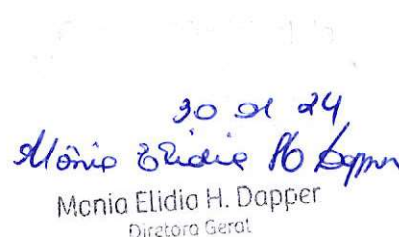 30 01 24
Mônia Elidia H Dapper
Monia Elidia H. Dapper
Diretora Geral